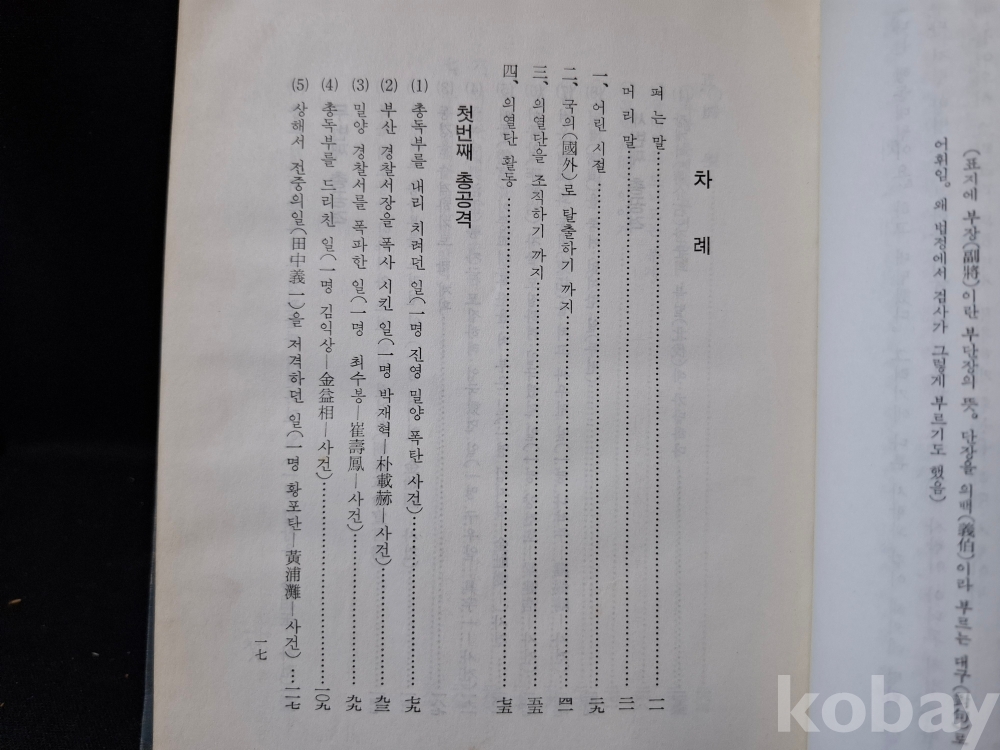 (표지에 부장(副將)이란 부단장의 뜻, 단장을 의백(義伯)이라 부르는 대구(對句)로
어휘임. 왜 법정에서 검사가 그렇게 부르기도 했음)
차 례
펴는 말……………一一
머리말……………二一
一、어린 시절……………二九
二、국의(國外)로 탈출하기 까지……………四一
三、의열단을 조직하기 까지……………五五
四、의열단 활동……………七五
첫번째 총공격
(1) 총독부를 내리 치려던 일(一명 진영 밀양 폭탄 사건)……………七九
(2) 부산 경찰서장을 폭사 시킨 일(一명 박재혁—朴載赫—사건)……………九三
(3) 밀양 경찰서를 폭파한 일(一명 최수봉—崔壽鳳—사건)……………九九
(4) 총독부를 드리친 일(一명 김익상—金益相—사건)……………一〇九
(5) 상해서 전중의일(田中義一)을 저격하던 일(一명 황포탄—黃浦灘—사건)…一一七
一七
kobay